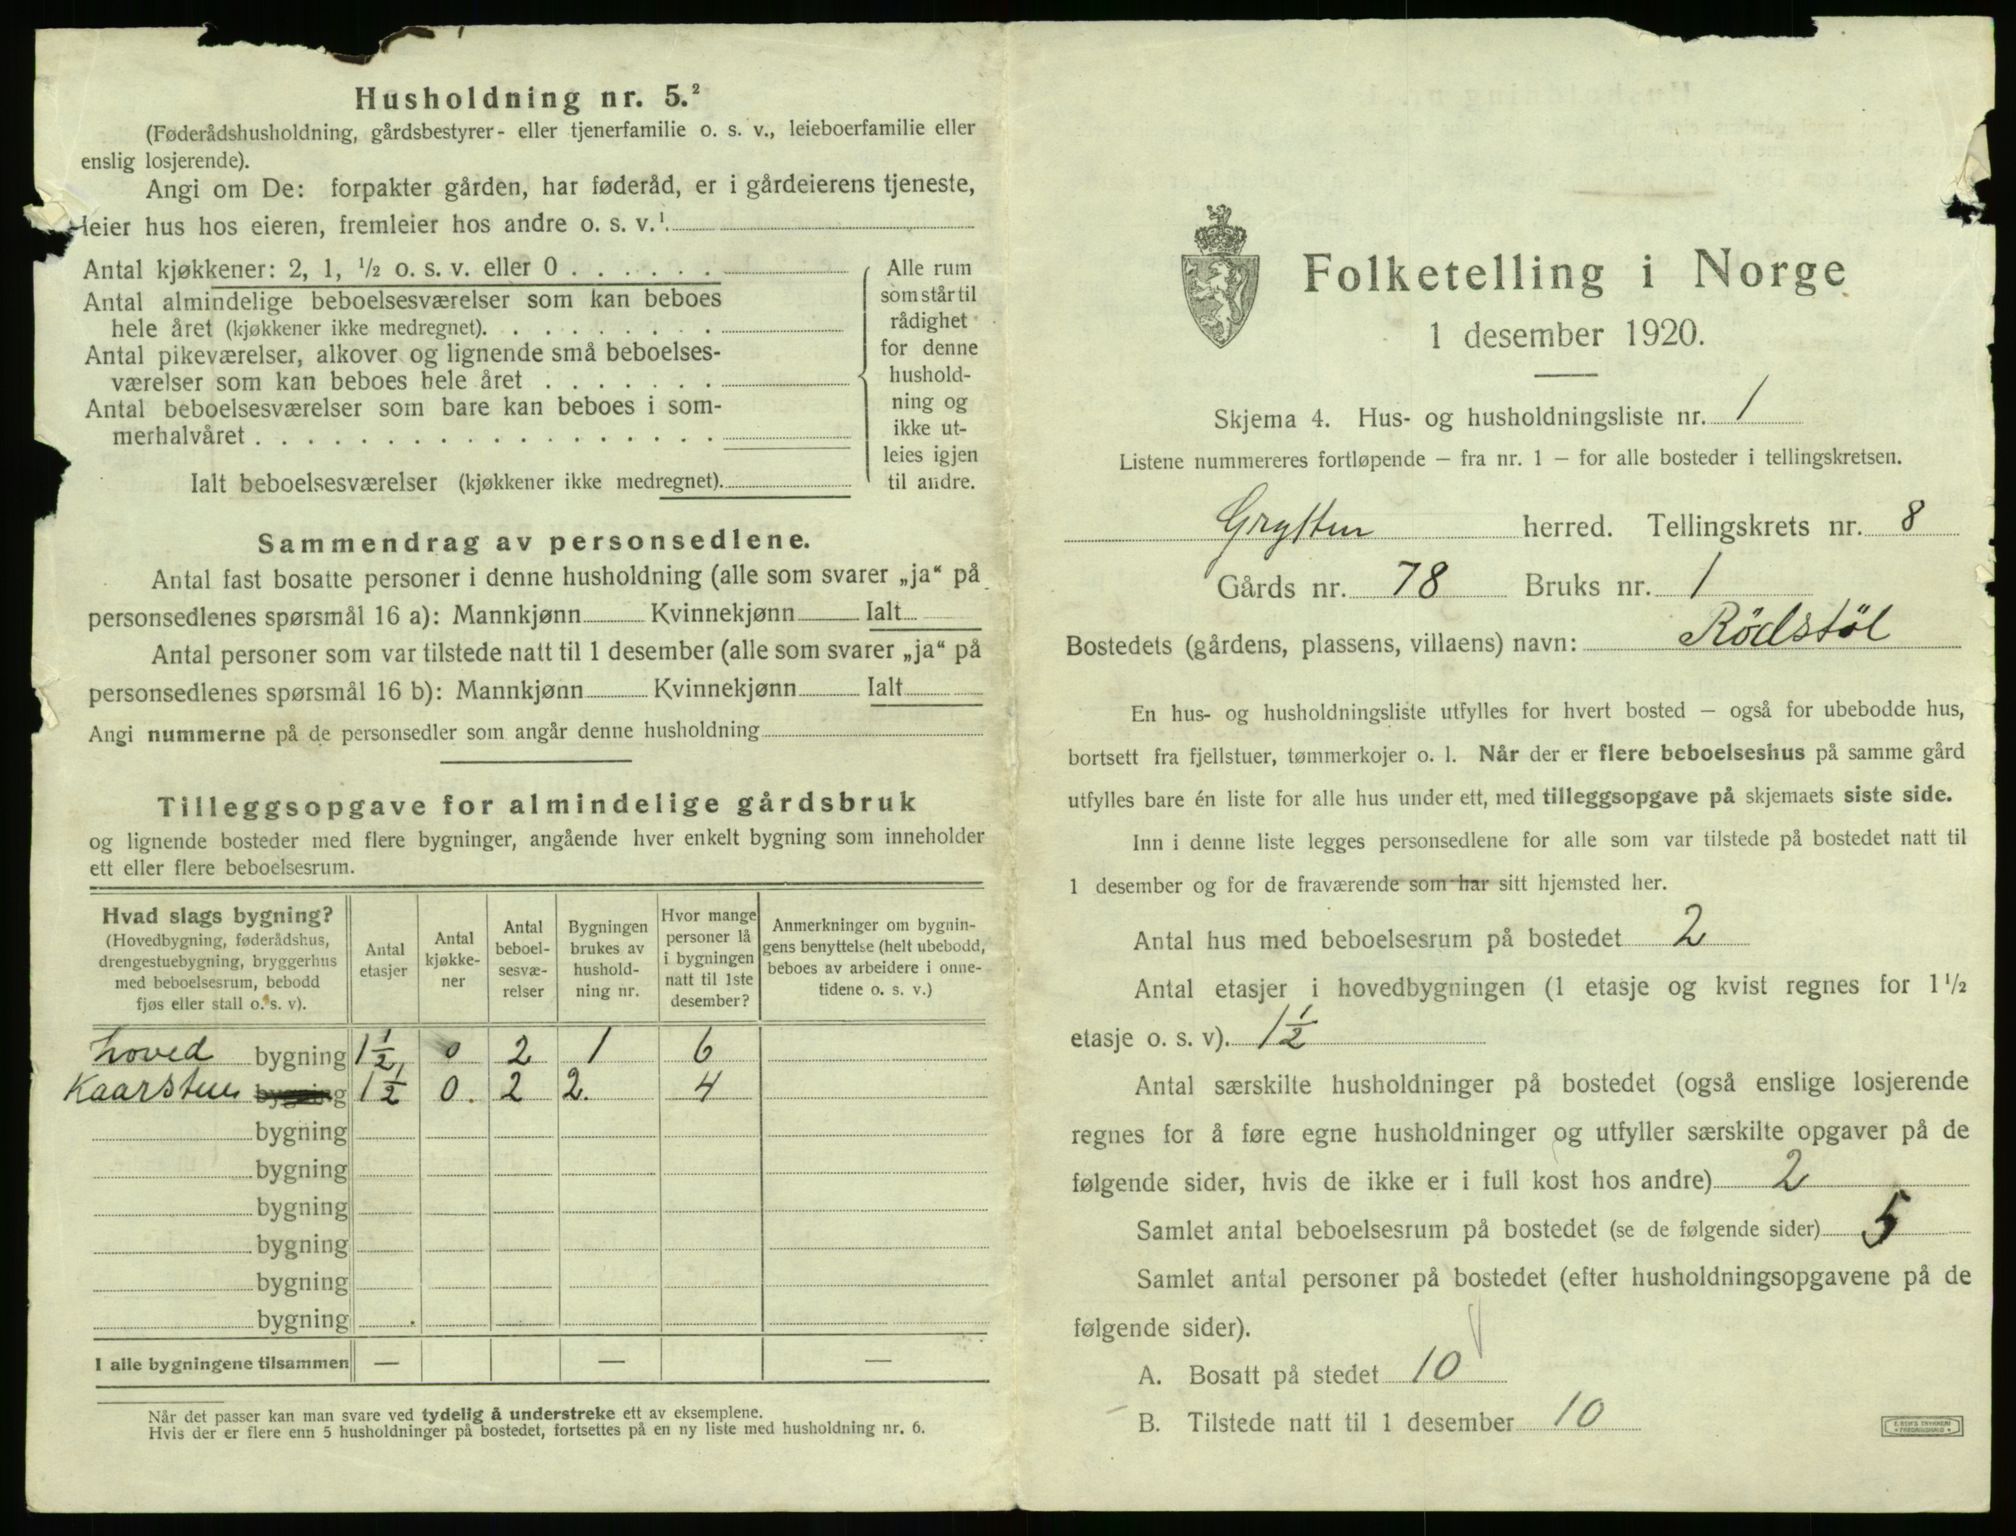 Husholdning nr. 5.²
(Føderådshusholdning, gårdsbestyrer- eller tjenerfamilie o. s. v., leieboerfamilie eller
enslig losjerende).
Angi om De: forpakter gården, har føderåd, er i gårdeierens tjeneste,
leier hus hos eieren, fremleier hos andre o. s. v.¹
Antal kjøkkener: 2, 1, ½ o. s. v. eller 0 . . . . . .
Antal almindelige beboelsesværelser som kan beboes
hele året (kjøkkener ikke medregnet). . . . . . . . .
Antal pikeværelser, alkover og lignende små beboelses-
værelser som kan beboes hele året . . . . . . .
Antal beboelsesværelser som bare kan beboes i som-
merhalvåret . . . . . . . . . . . . . . . . . .
Ialt beboelsesværelser (kjøkkener ikke medregnet).
Alle rum
som står til
rådighet
for denne
hushold-
ning og
ikke ut-
leies igjen
til andre.
Sammendrag av personsedlene.
Antal fast bosatte personer i denne husholdning (alle som svarer „ja“ på
personsedlenes spørsmål 16 a): Mannkjønn Kvinnekjønn Ialt
Antal personer som var tilstede natt til 1 desember (alle som svarer „ja“ på
personsedlenes spørsmål 16 b): Mannkjønn Kvinnekjønn Ialt
Angi nummerne på de personsedler som angår denne husholdning
Tilleggsopgave for almindelige gårdsbruk
og lignende bosteder med flere bygninger, angående hver enkelt bygning som inneholder
ett eller flere beboelsesrum.
Hvad slags bygning?
(Hovedbygning, føderådshus,
drengestuebygning, bryggerhus
med beboelsesrum, bebodd
fjøs eller stall o. s. v).
Antal
etasjer
Antal
kjøkke-
ner
Antal
beboel-
sesvæ-
relser
Bygningen
brukes av
hushold-
ning nr.
Hvor mange
personer lå
i bygningen
natt til 1ste
desember?
Anmerkninger om bygnin-
gens benyttelse (helt ubebodd,
beboes av arbeidere i onne-
tidene o. s. v.)
hoved bygning 1½ 0 2 1 6
Kaarstuen bygning 1½ 0. 2 2. 4
bygning
bygning
bygning
bygning
bygning
bygning
I alle bygningene tilsammen — — —
Når det passer kan man svare ved tydelig å understreke ett av eksemplene.
Hvis der er flere enn 5 husholdninger på bostedet, fortsettes på en ny liste med husholdning nr. 6.
Folketelling i Norge
1 desember 1920.
Skjema 4. Hus- og husholdningsliste nr. 1
Listene nummereres fortløpende — fra nr. 1 — for alle bosteder i tellingskretsen.
Grytten herred. Tellingskrets nr. 8
Gårds nr. 78 Bruks nr. 1
Bostedets (gårdens, plassens, villaens) navn: Rödstöl
En hus- og husholdningsliste utfylles for hvert bosted — også for ubebodde hus,
bortsett fra fjellstuer, tømmerkojer o. l. Når der er flere beboelseshus på samme gård
utfylles bare én liste for alle hus under ett, med tilleggsopgave på skjemaets siste side.
Inn i denne liste legges personsedlene for alle som var tilstede på bostedet natt til
1 desember og for de fraværende som har sitt hjemsted her.
Antal hus med beboelsesrum på bostedet 2
Antal etasjer i hovedbygningen (1 etasje og kvist regnes for 1½
etasje o. s. v). 1½
Antal særskilte husholdninger på bostedet (også enslige losjerende
regnes for å føre egne husholdninger og utfyller særskilte opgaver på de
følgende sider, hvis de ikke er i full kost hos andre) 2
Samlet antal beboelsesrum på bostedet (se de følgende sider) 5
Samlet antal personer på bostedet (efter husholdningsopgavene på de
følgende sider).
A. Bosatt på stedet 10
B. Tilstede natt til 1 desember 10